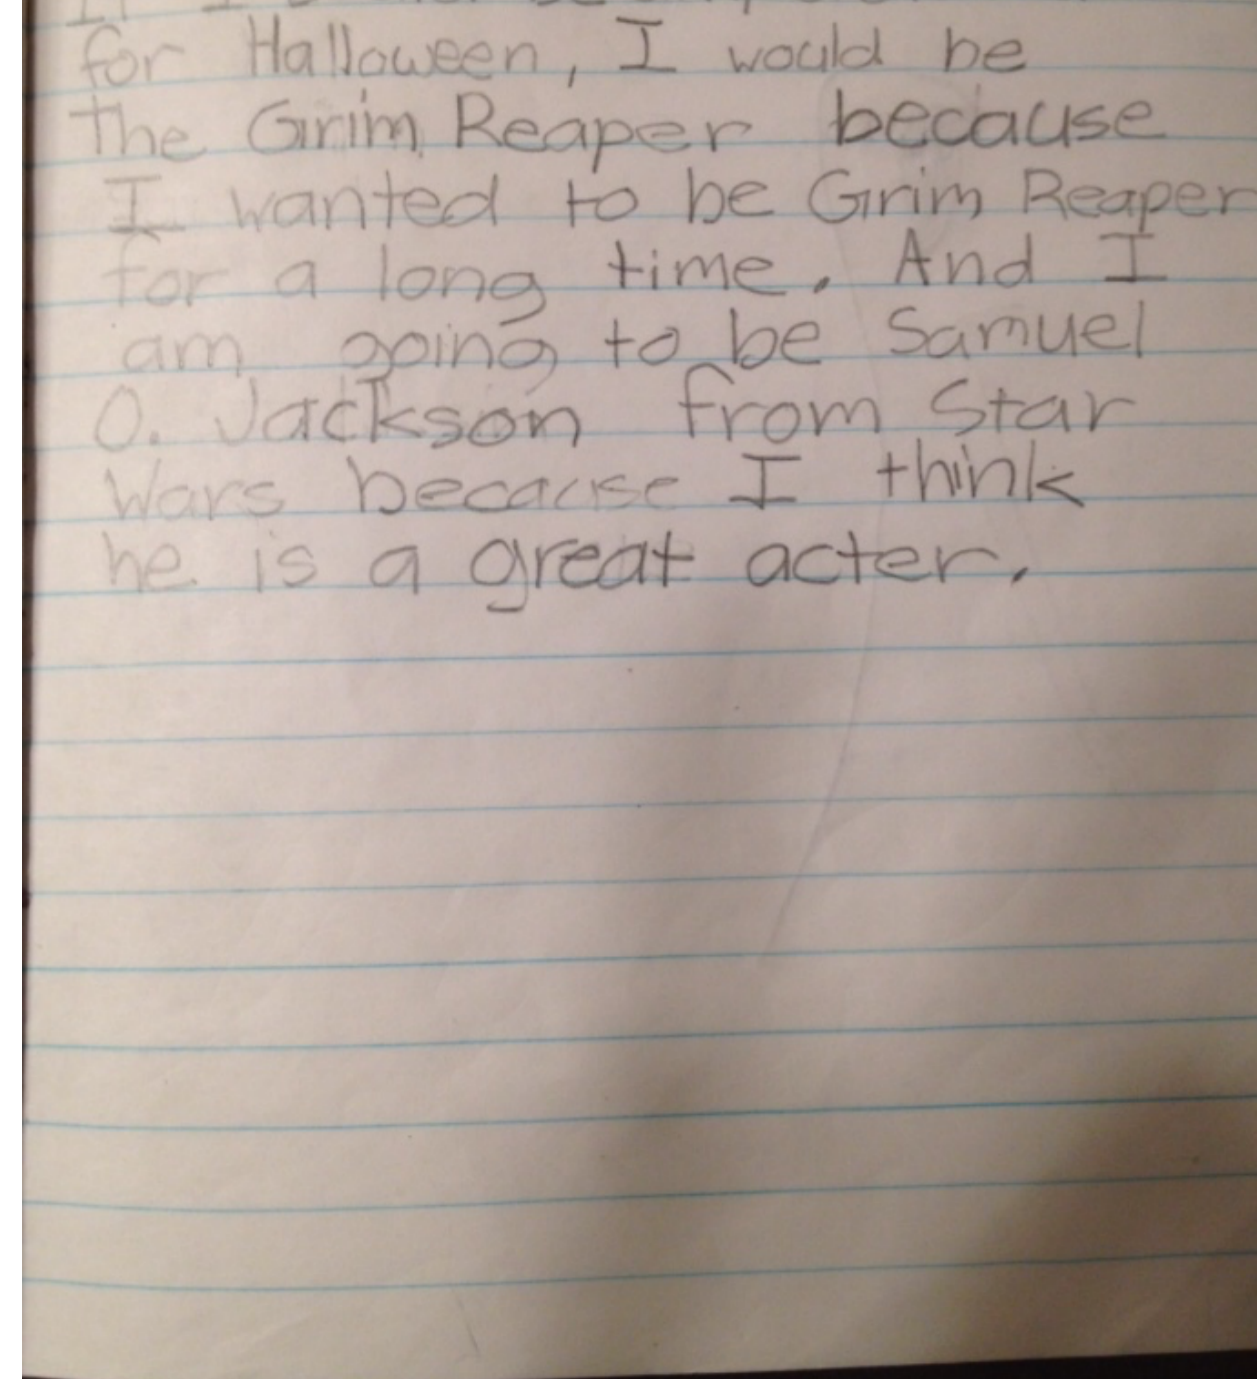 for Halloween, I would be
The Grim Reaper because
I wanted to be Grim Reaper
for a long time. And I
am going to be Samuel
O. Jackson from Star
Wars because I think
he is a great acter.